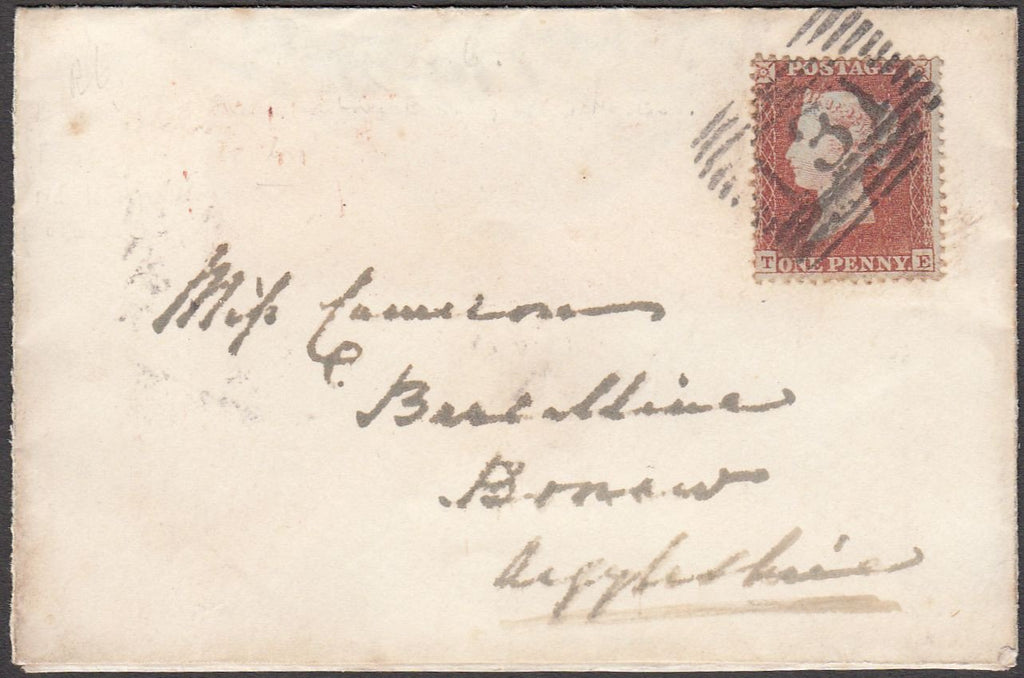 POSTAGE
131
T ONE PENNY E
Miss Cameron
Barcaldine
Bonaw
Argyleshire